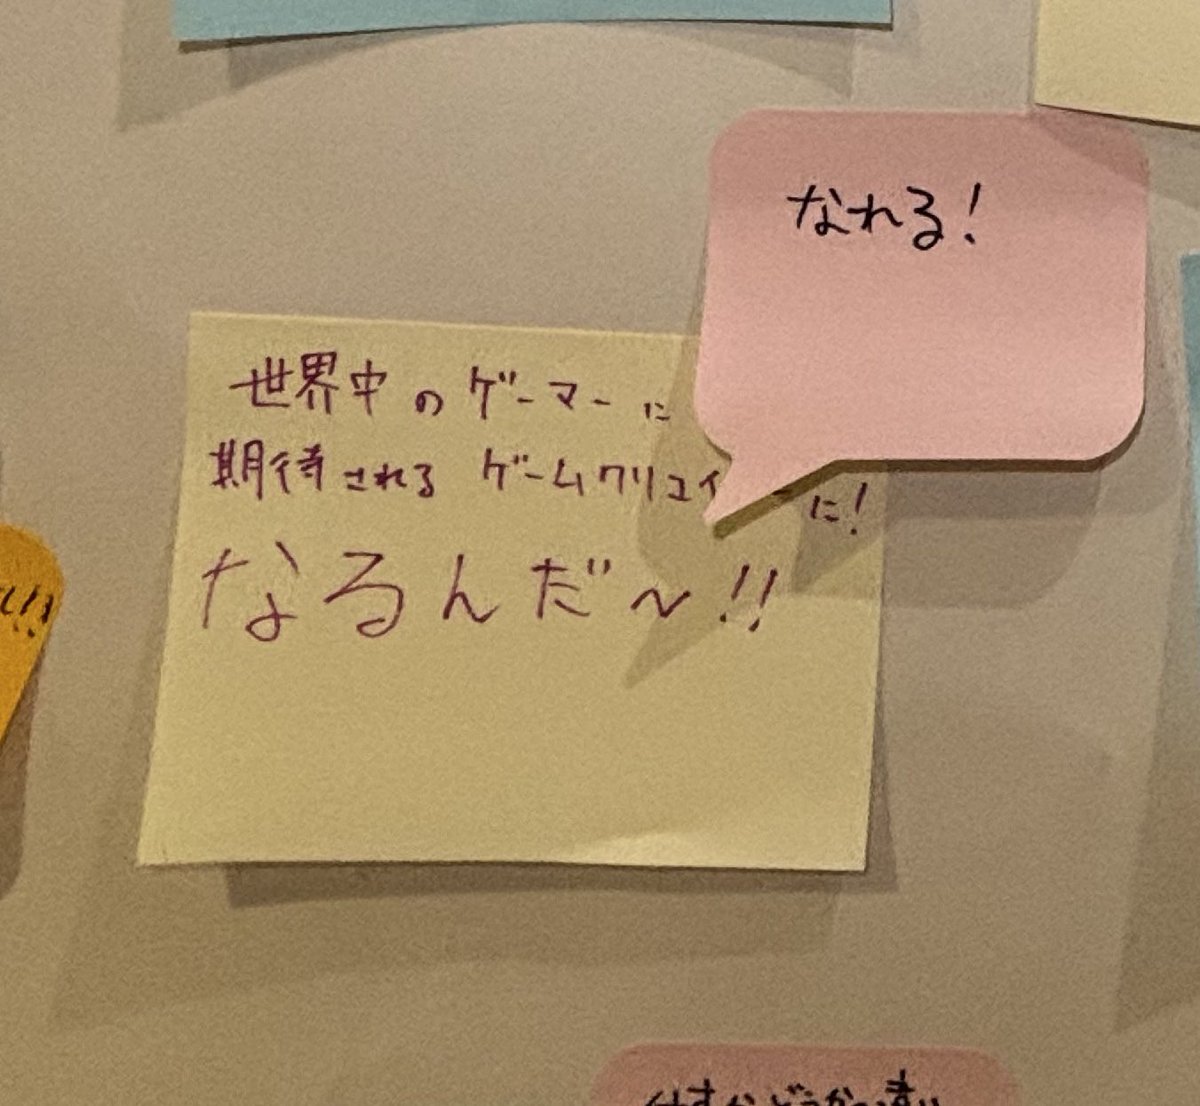 なれる!
世界中のゲーマーに
期待されるゲームクリエイ に!
なるんだ~!!